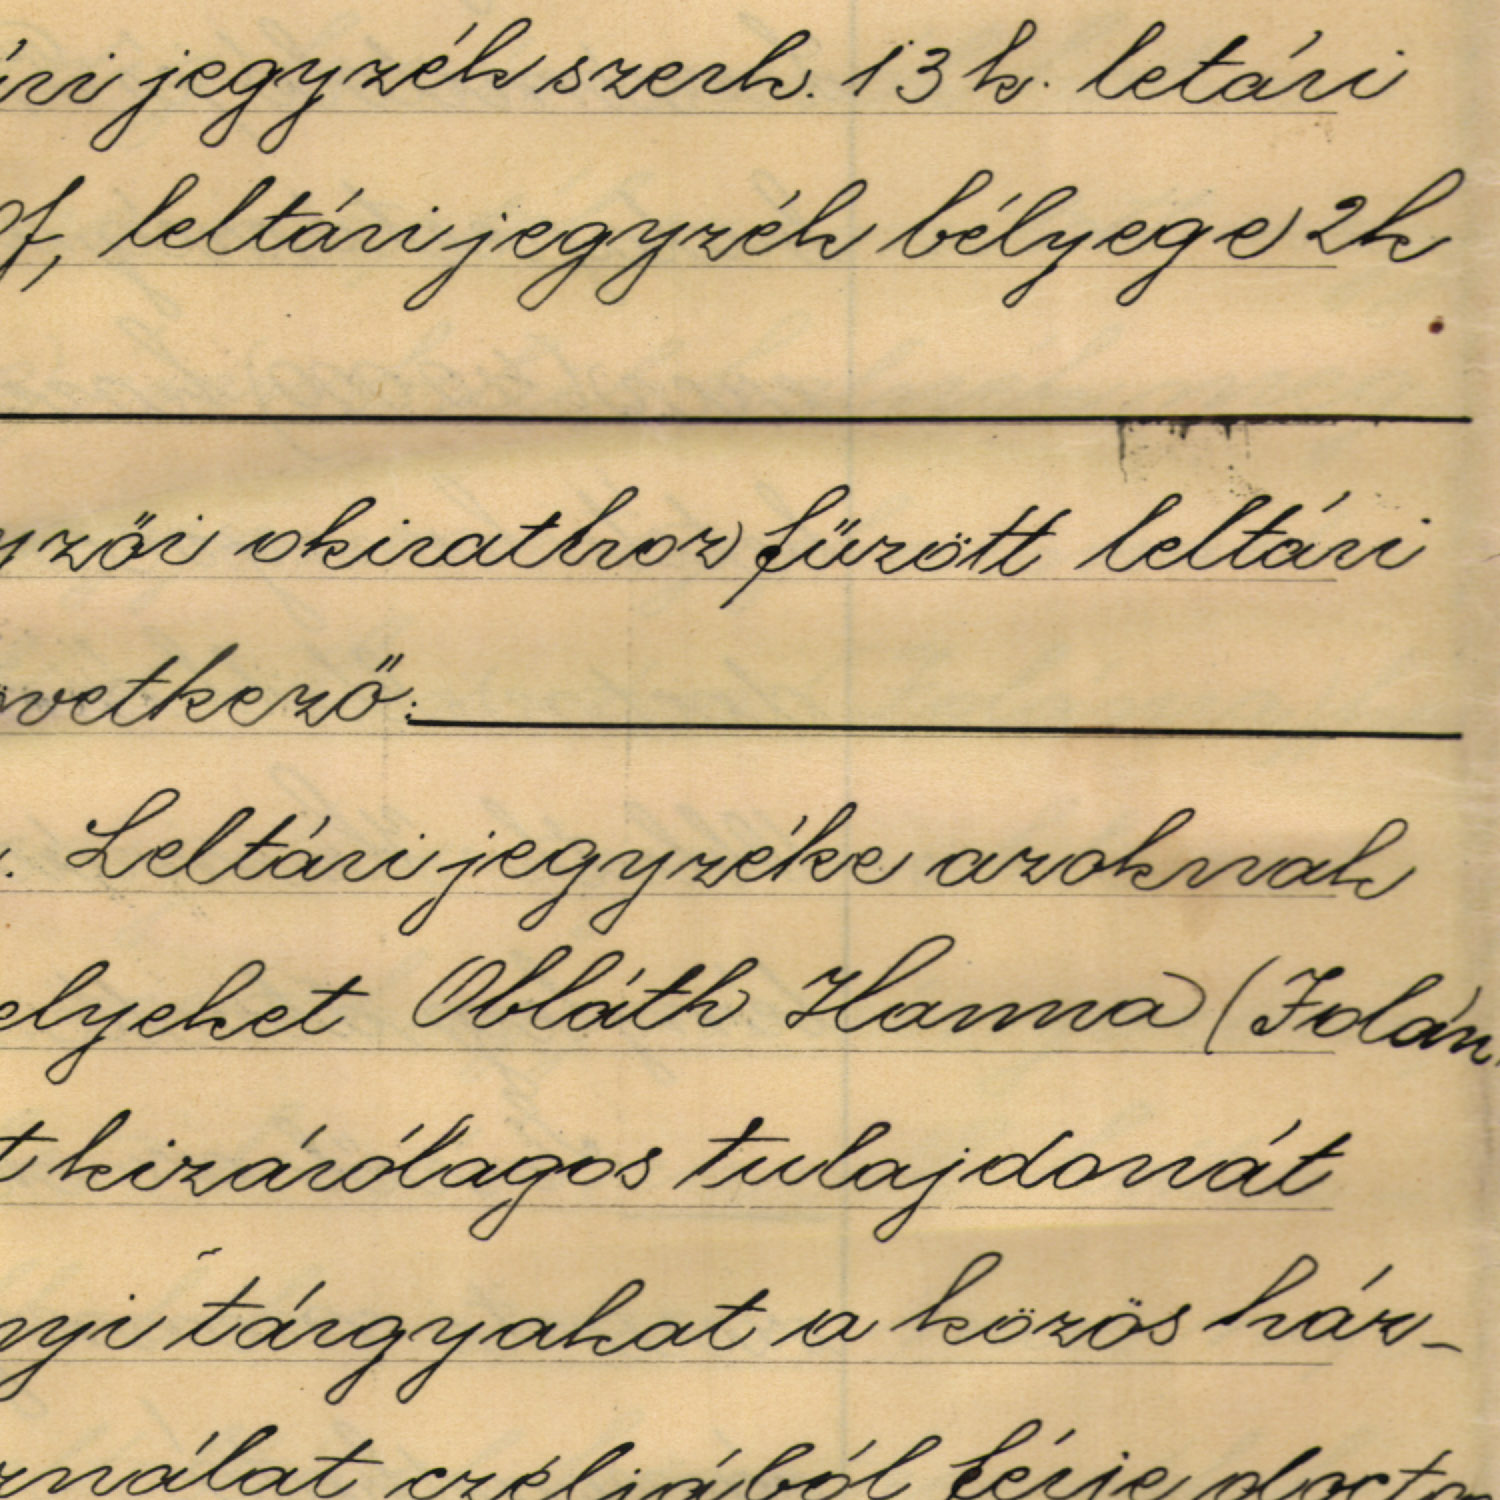 ári jegyzék szerk. 13 k. letári
of, leltári jegyzék bélyege 2k
yzői okirathoz füzött leltári
övetkező:
. Leltári jegyzéke azoknak
elyeket Obláth Hanna (Jolán
t kizárólagos tulajdonát
nyi tárgyakat a közös ház-
ználat czéljából férje docto